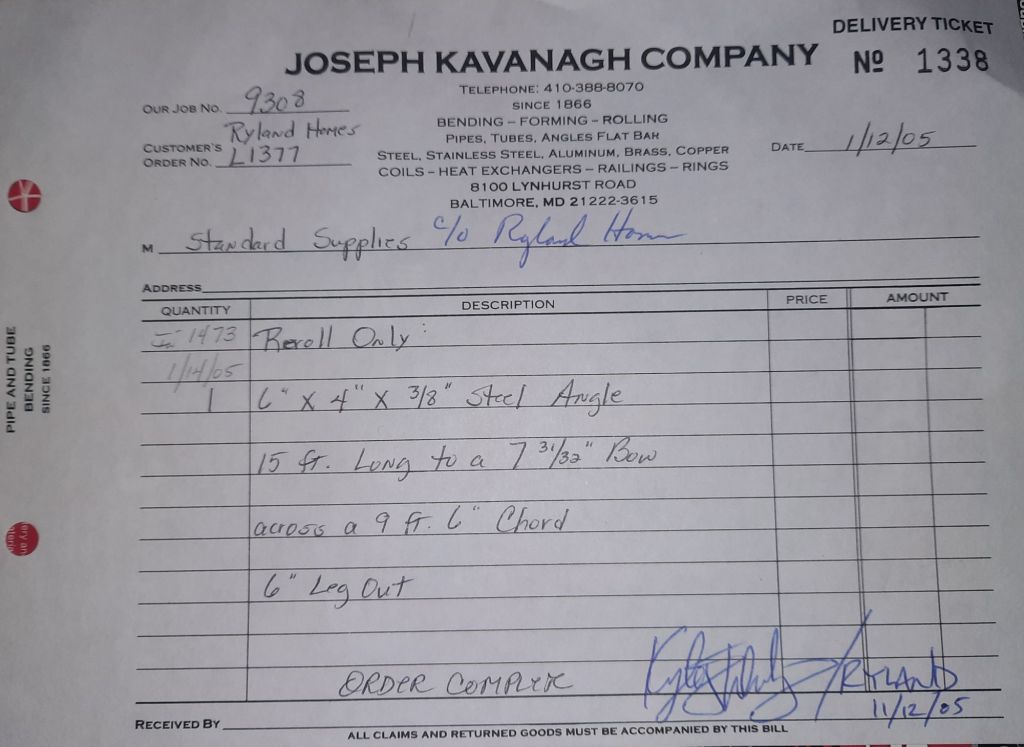 DELIVERY TICKET
JOSEPH KAVANAGH COMPANY
Nº 1338
TELEPHONE: 410-388-8070
SINCE 1866
BENDING – FORMING – ROLLING
PIPES, TUBES, ANGLES FLAT BAR
STEEL, STAINLESS STEEL, ALUMINUM, BRASS, COPPER
COILS – HEAT EXCHANGERS – RAILINGS – RINGS
8100 LYNHURST ROAD
BALTIMORE, MD 21222-3615
OUR JOB NO. 9308
Ryland Homes
CUSTOMER'S ORDER NO. L1377
DATE 1/12/05
M Standard Supplies c/o Ryland Homes
ADDRESS
QUANTITY DESCRIPTION PRICE AMOUNT
1473 Reroll Only:
1/14/05
1 6" X 4" X 3/8" Steel Angle
15 ft. Long to a 7 31/32" Bow
across a 9 ft. 6" Chord
6" Leg Out
ORDER COMPLETE
/ RYLAND
11/12/05
RECEIVED BY
ALL CLAIMS AND RETURNED GOODS MUST BE ACCOMPANIED BY THIS BILL
PIPE AND TUBE
BENDING
SINCE 1866